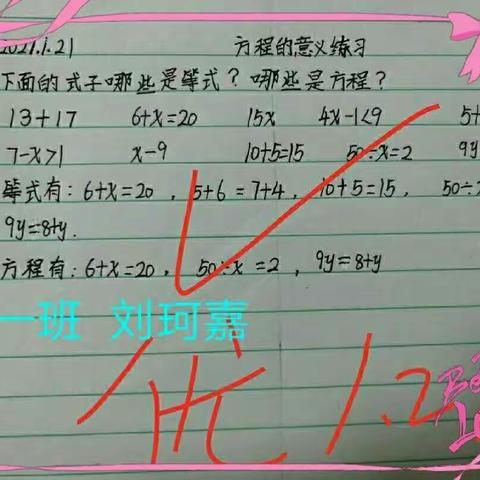 2021.1.21 方程的意义练习
下面的式子哪些是等式？哪些是方程？
13+17 6+x=20 15x 4x-1<9 5+
7-x>1 x-9 10+5=15 50÷x=2 9y
等式有：6+x=20，5+6=7+4，10+5=15， 50÷
9y=8+y.
方程有：6+x=20， 50÷x=2，9y=8+y
一班 刘珂嘉
优 1.2